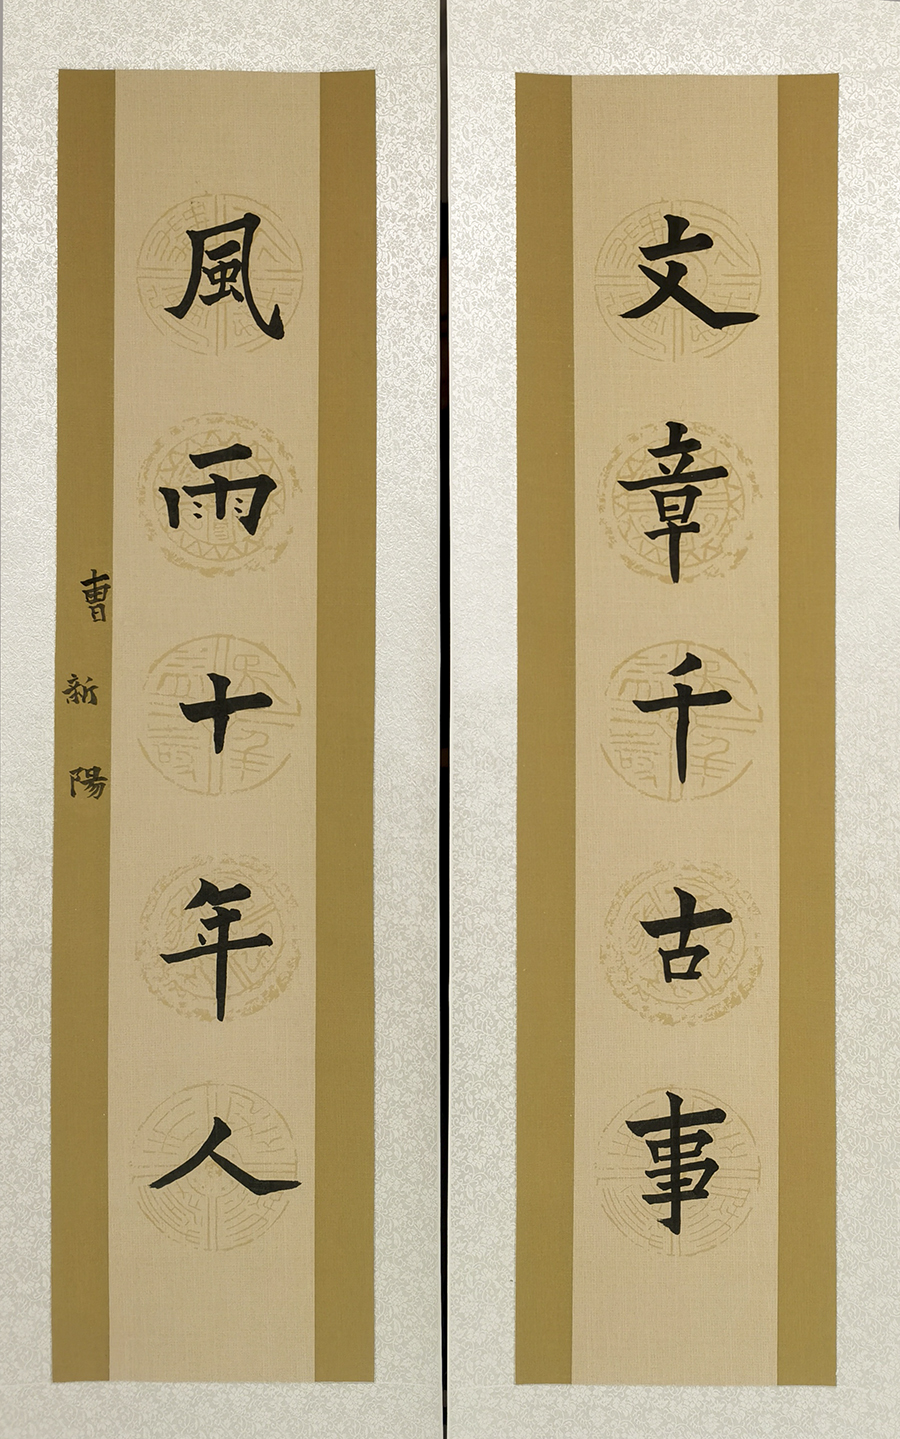 文章千古事
風雨十年人
曹新陽